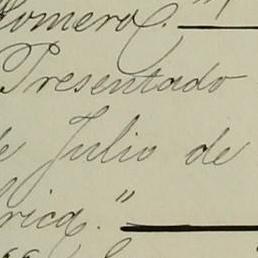 Romero.
Presentado
de Julio de
rica."